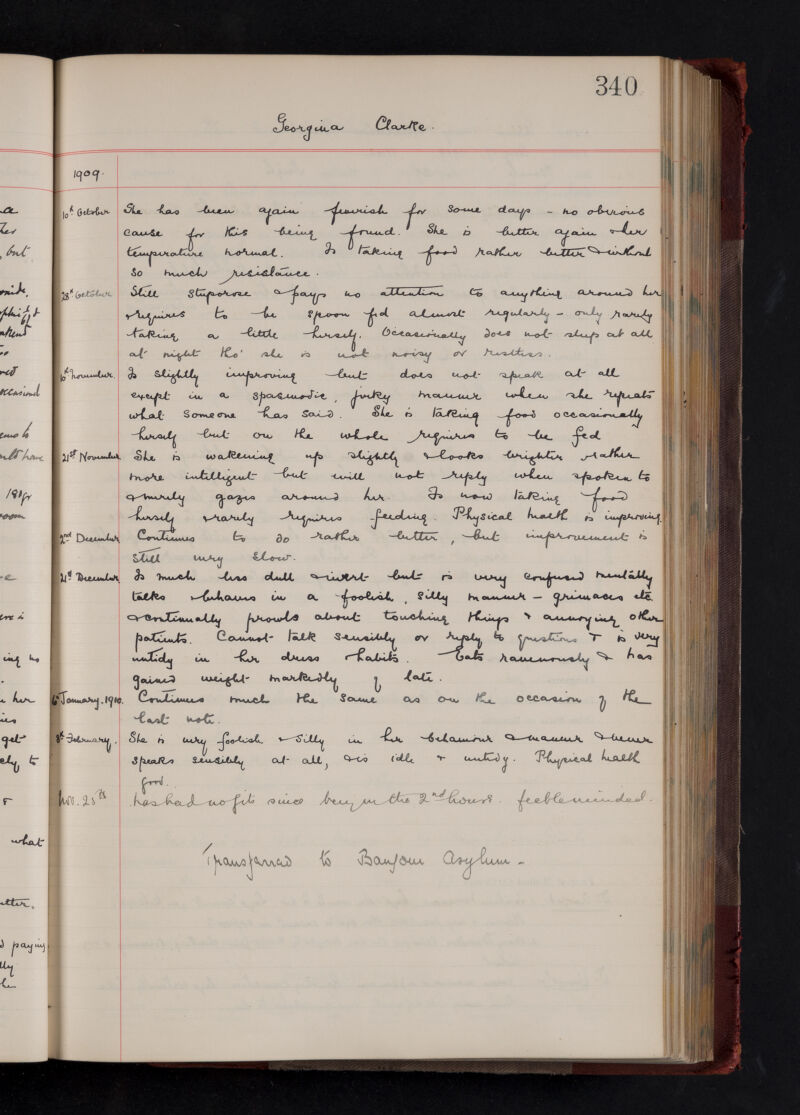 340
Georgina Clarke.
1909.
10th October She has been again feverish for some days - no obvious
cause for this being found. She is better again & her
temperature normal. Is taking food rather better & without
so much resistance.
28th October Still stuporose & pays no attention to anything around her
& requires to be spoon fed almost regularly - only rarely
taking a little herself. Occasionally does not sleep at all
at night tho' she is not noisy or restless.
10th November. Is slightly improving but does not speak at all
except in a spasmodic, jerky manner when she repeats
what someone has said. She is taking food occasionally
herself but on the whole requires to be fed
21st November She is wakening up slightly & looks brighter & rather
more intelligent but will not reply when spoken to
& merely gazes around her. Is now taking food
herself & rarely requires feeding. Physical health is improving.
2nd December Continues to do rather better, but improvement is
still very slow.
21st December Is much less dull & inert but is very confused mentally
talks & behaves in a foolish, silly manner - grimaces etc.
& continually prowls about touching things & annoying other
patients. Cannot talk sensibly or reply to questions & is very
untidy in her dress & habits. Eats ravenously & has
gained weight markedly of late.
January. 1910. Continues much the same as on the occasion of the
last note.
8th February. She is very foolish & silly in her behaviour & manner & never
speaks sensibly at all, & is idle & untidy. Physical health
good.
Nov. 25th has had no fits since being in the 2nd house. feebleminded.
Transferred to Bangour Asylum -
but
what
paying